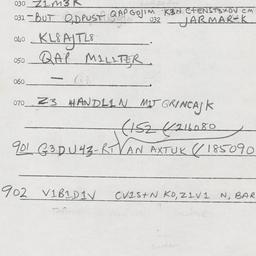 030 Z1M3K
031 -BUT O,DPUST QAPGOJIM
032 JARMAR-K
040 KL8AJTL8
050 QAP M1LLTER
060 —
070 Z3 HANDLIN MIT GRINCAJK
(152 (/216080
901 G3DU43-RT VAN AXTUK (/185090
902 V1B1D1V CV1S+N KO,Z1V1 N, BAR